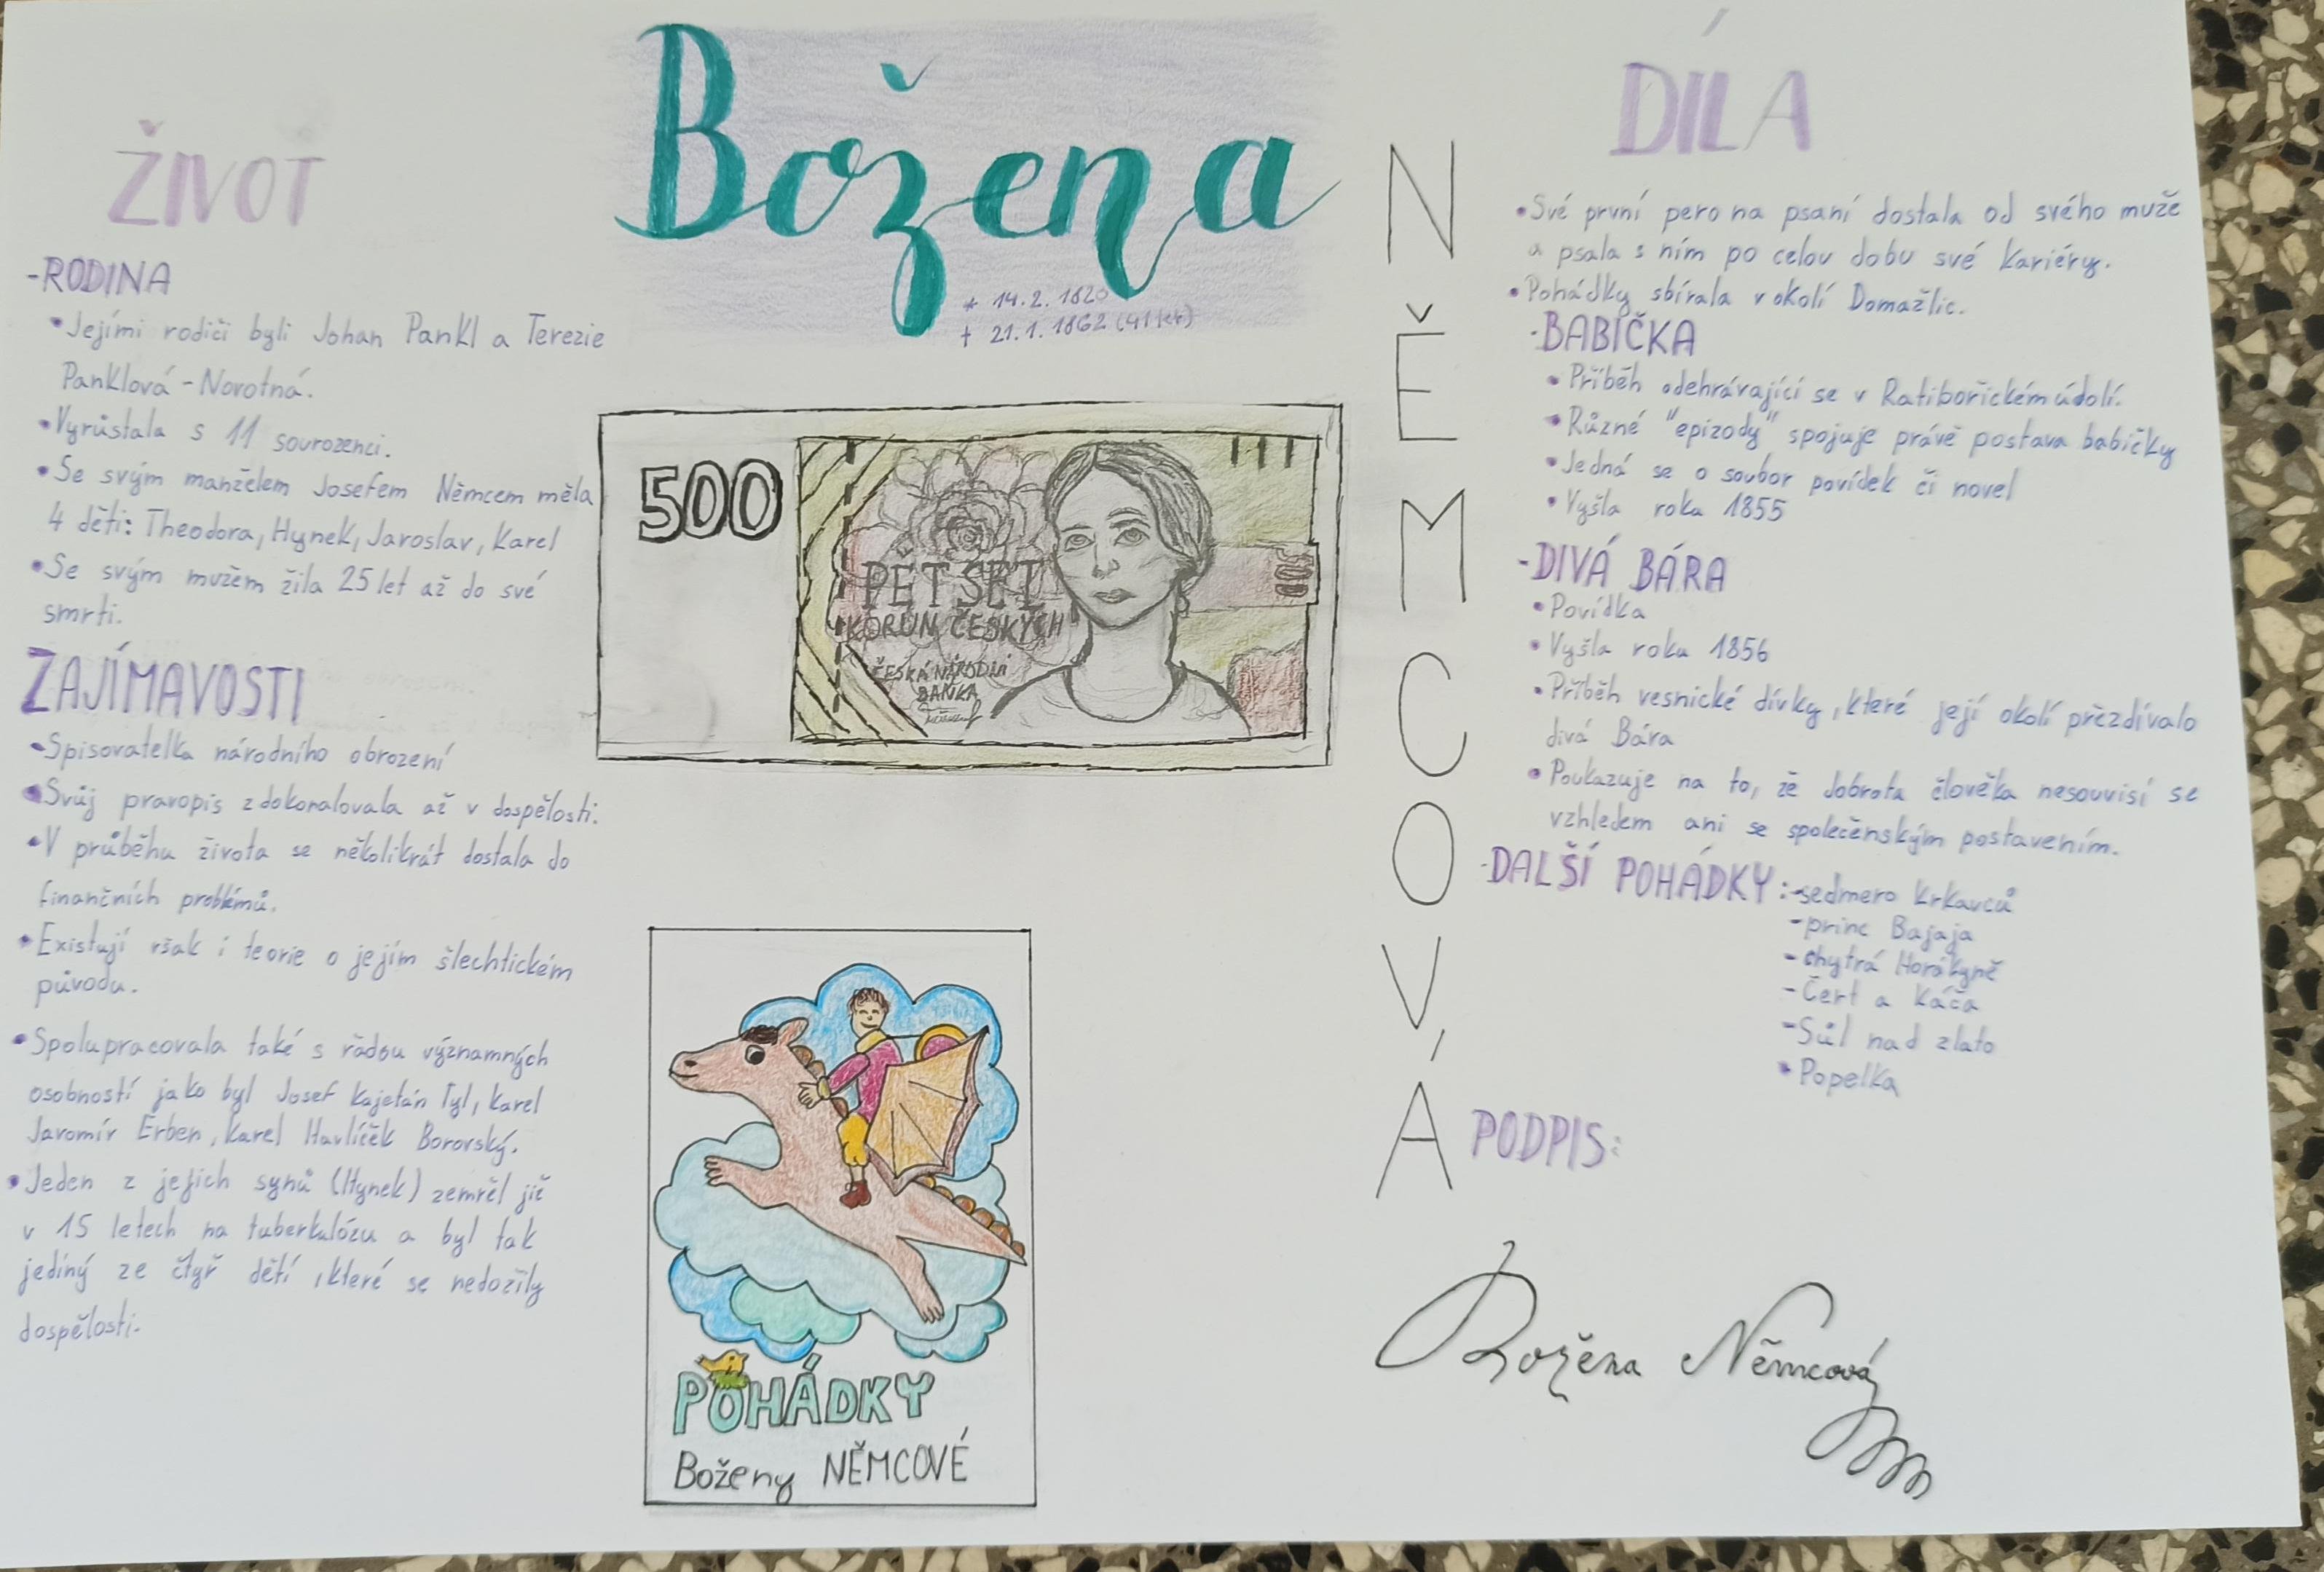 Božena
* 14. 2. 1820
† 21. 1. 1862 (41 let)
NĚMCOVÁ
ŽIVOT
-RODINA
•Jejími rodiči byli Johan Pankl a Terezie
Panklová - Novotná.
•Vyrůstala s 11 sourozenci.
•Se svým manželem Josefem Němcem měla
4 děti: Theodora, Hynek, Jaroslav, Karel
•Se svým mužem žila 25 let až do své
smrti.
ZAJÍMAVOSTI
•Spisovatelka národního obrození
•Svůj pravopis zdokonalovala až v dospělosti.
•V průběhu života se několikrát dostala do
finančních problémů.
•Existují však i teorie o jejím šlechtickém
původu.
•Spolupracovala také s řadou významných
osobností jako byl Josef Kajetán Tyl, Karel
Jaromír Erben, Karel Havlíček Borovský.
•Jeden z jejich synů (Hynek) zemřel již
v 15 letech na tuberkulózu a byl tak
jediný ze čtyř dětí, které se nedožily
dospělosti.
500
PĚT SET
KORUN ČESKÝCH
ČESKÁ NÁRODNÍ
BANKA
500
POHÁDKY
Boženy NĚMCOVÉ
DÍLA
•Své první pero na psaní dostala od svého muže
a psala s ním po celou dobu své kariéry.
•Pohádky sbírala v okolí Domažlic.
-BABIČKA
•Příběh odehrávající se v Ratibořickém údolí.
•Různé "epizody" spojuje právě postava babičky
•Jedná se o soubor povídek či novel
•Vyšla roku 1855
-DIVÁ BÁRA
•Povídka
•Vyšla roku 1856
•Příběh vesnické dívky, které její okolí přezdívalo
divá Bára
•Poukazuje na to, že dobrota člověka nesouvisí se
vzhledem ani se společenským postavením.
-DALŠÍ POHÁDKY: -sedmero krkavců
-princ Bajaja
-chytrá Horákyně
-Čert a Káča
-Sůl nad zlato
•Popelka
PODPIS:
Božena Němcová